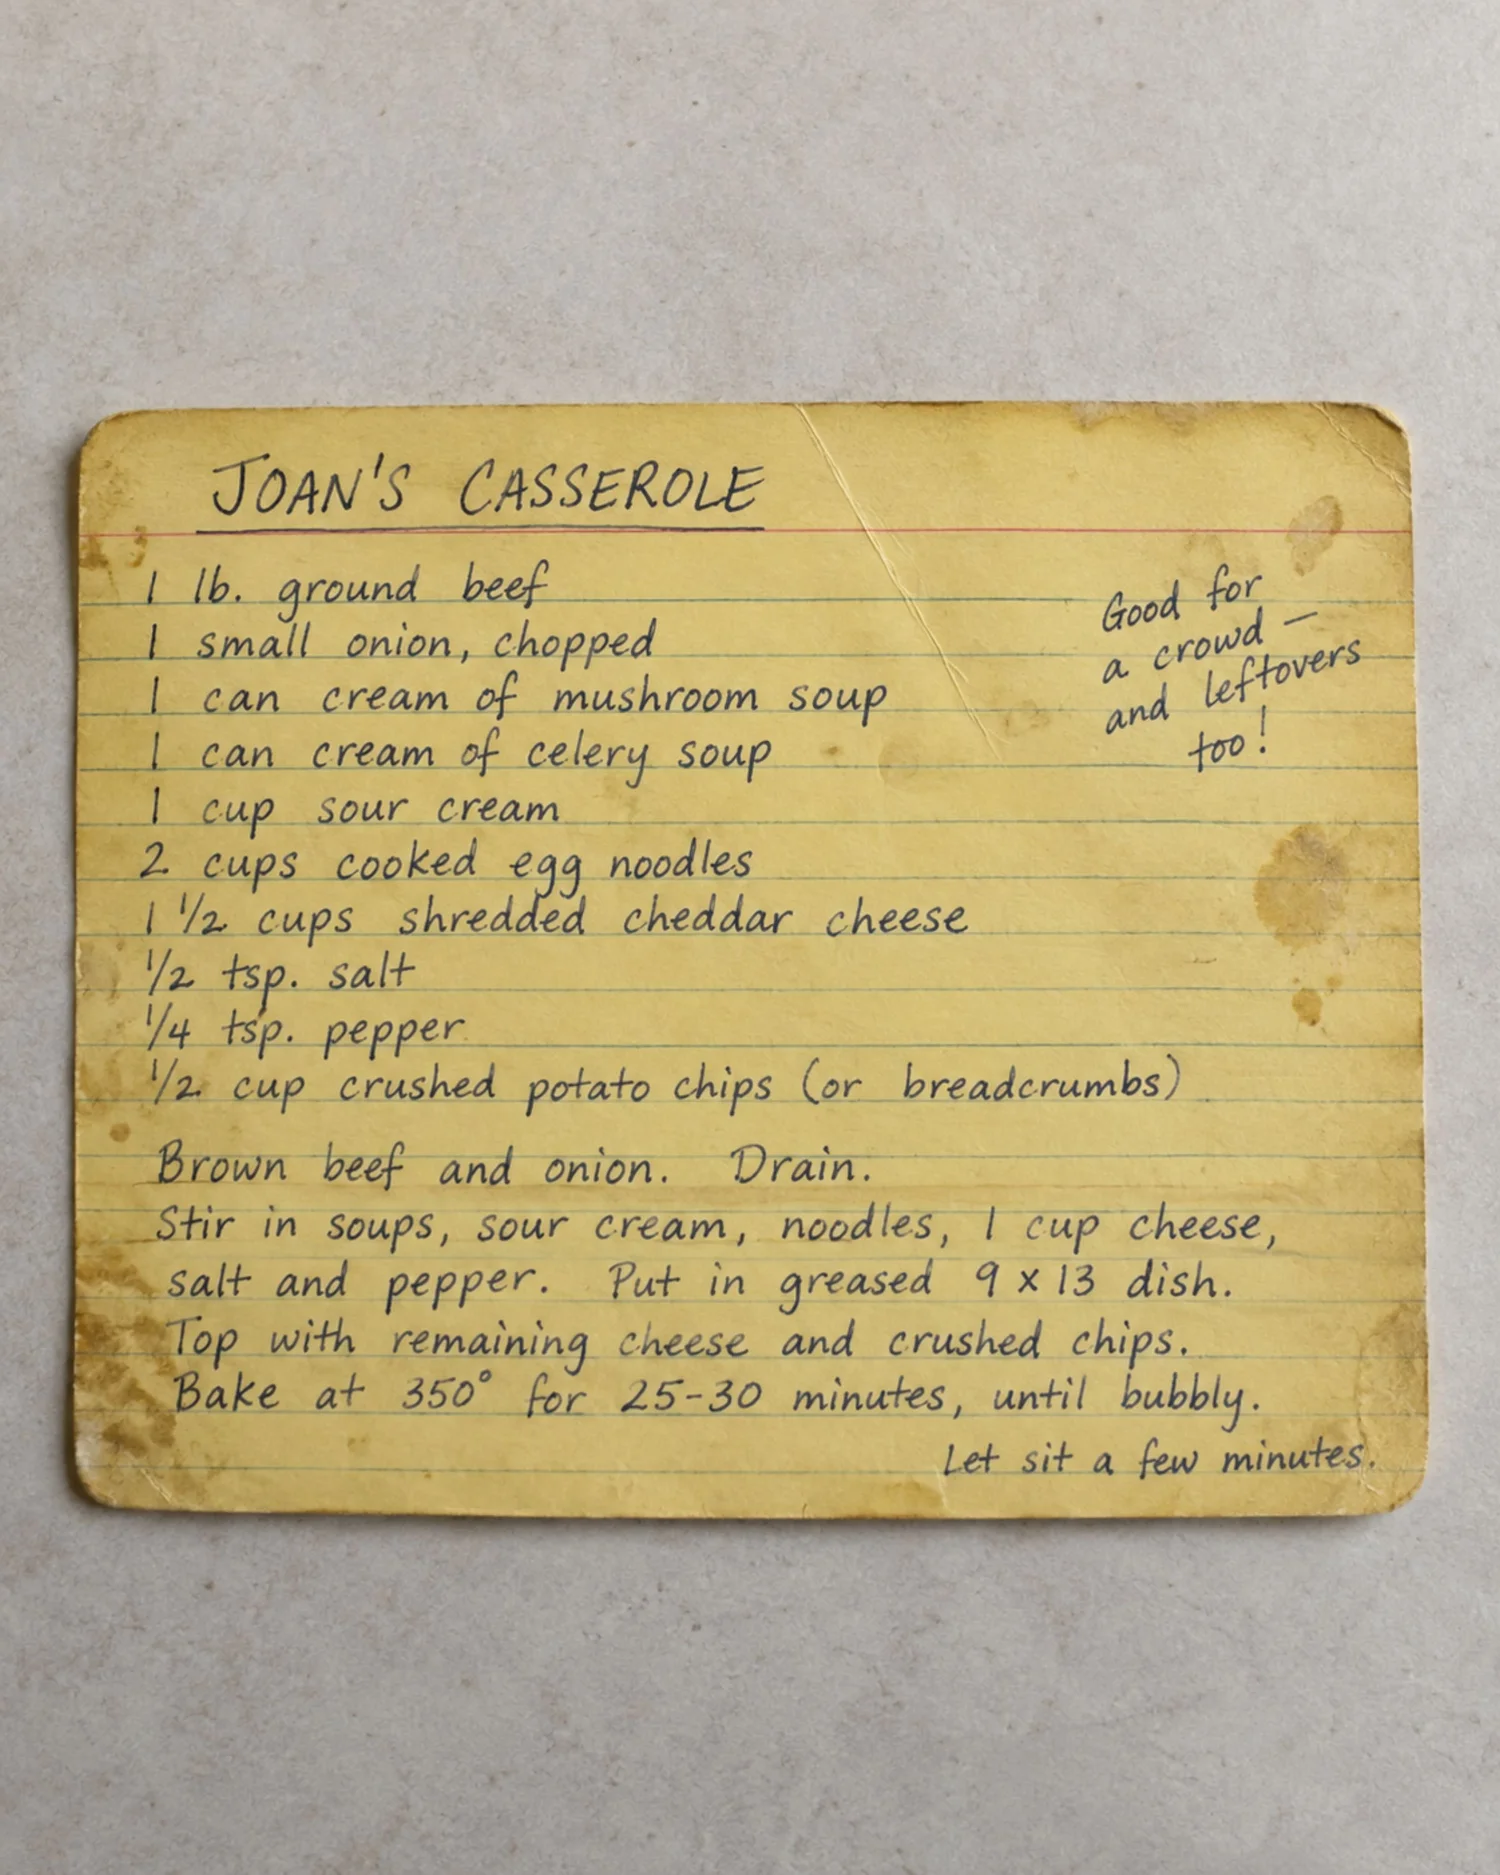 JOAN'S CASSEROLE
1 lb. ground beef
1 small onion, chopped
1 can cream of mushroom soup
1 can cream of celery soup
1 cup sour cream
2 cups cooked egg noodles
1 1/2 cups shredded cheddar cheese
1/2 tsp. salt
1/4 tsp. pepper
1/2 cup crushed potato chips (or breadcrumbs)
Good for
a crowd –
and leftovers
too!
Brown beef and onion. Drain.
Stir in soups, sour cream, noodles, 1 cup cheese,
salt and pepper. Put in greased 9 x 13 dish.
Top with remaining cheese and crushed chips.
Bake at 350° for 25-30 minutes, until bubbly.
Let sit a few minutes.